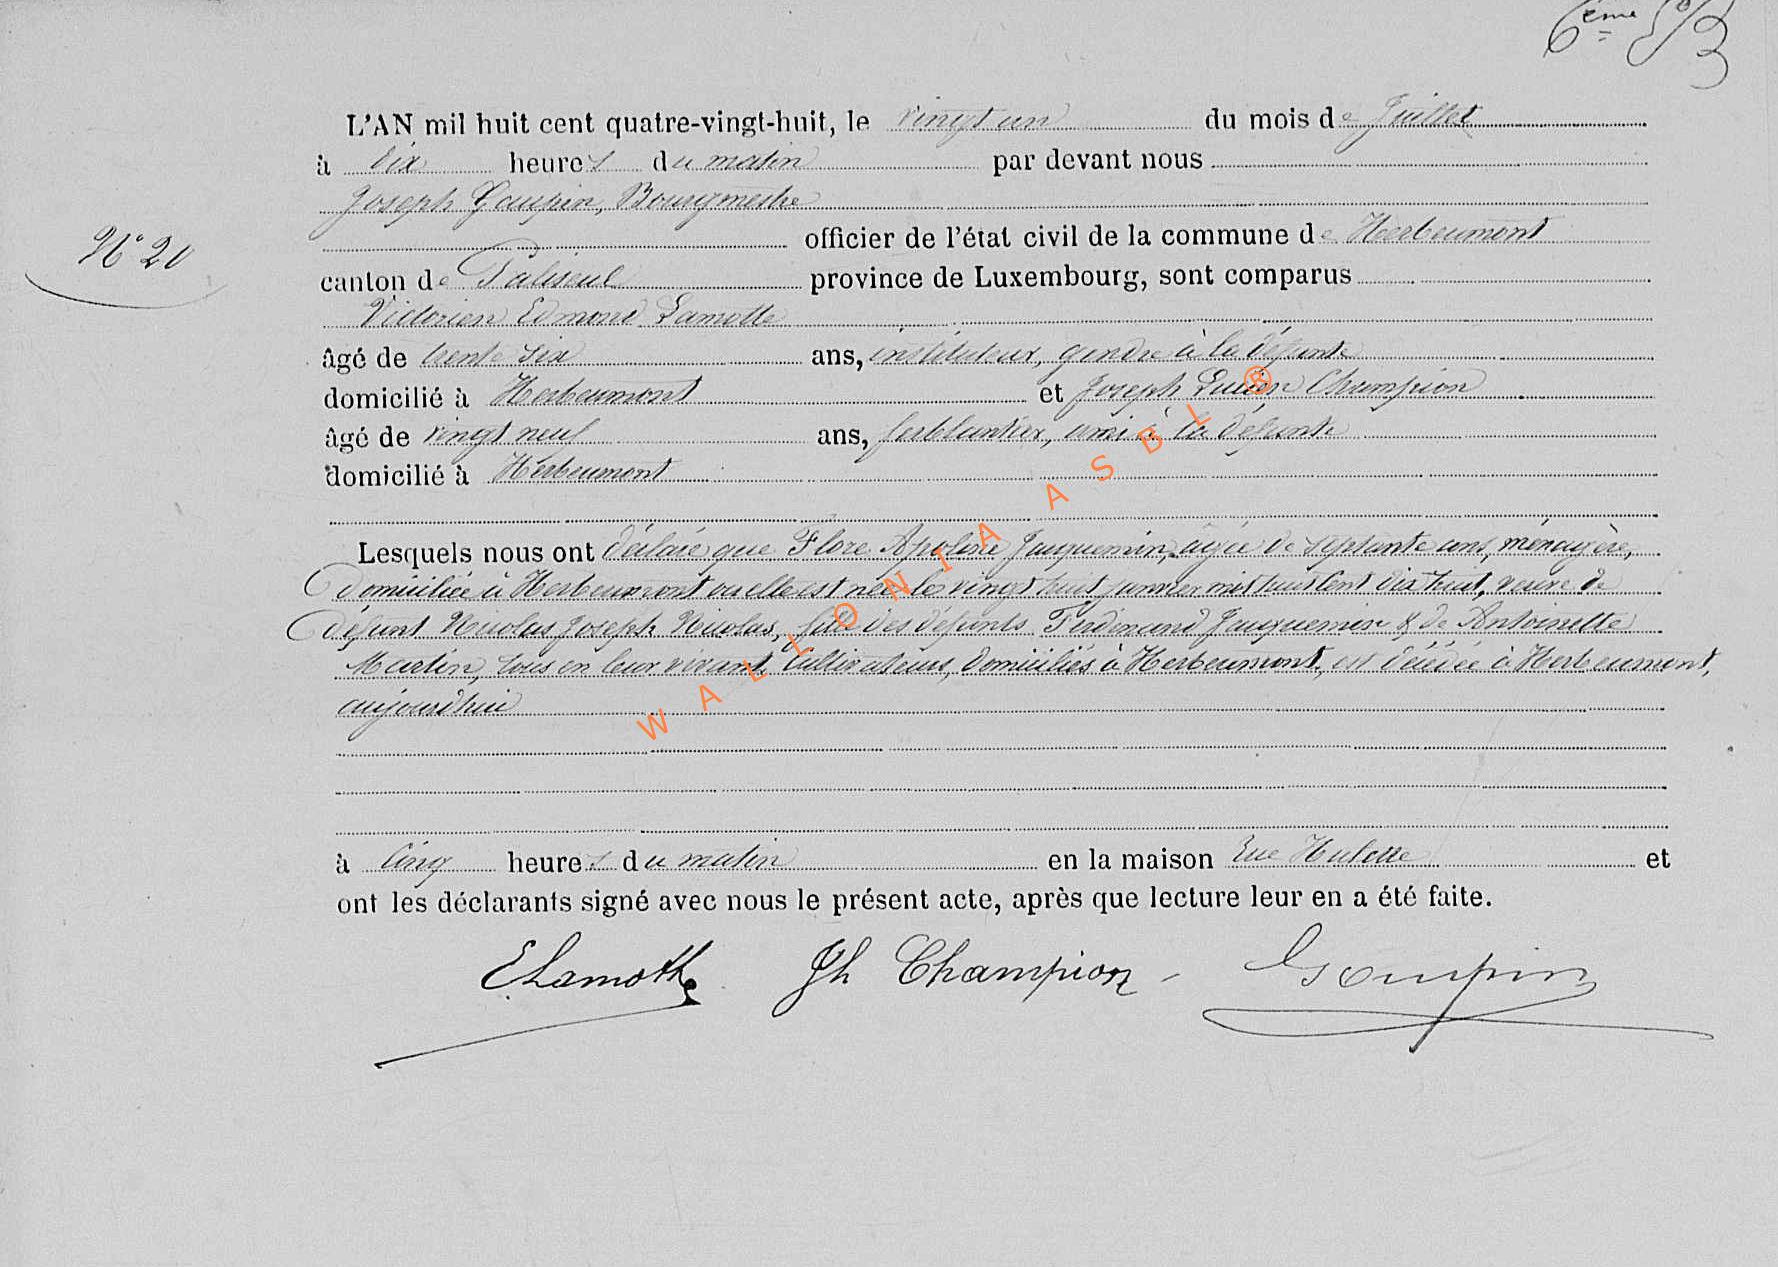 6ème
L'AN mil huit cent quatre-vingt-huit, le vingt un du mois de Juillet
à dix heures du matin par devant nous
Joseph Goupin, Bourgmestre
officier de l'état civil de la commune de Herbeumont
N° 20
canton de Paliseul province de Luxembourg, sont comparus
Victorien Edmond Lamotte
âgé de trente six ans, instituteur, gendre à la défunte
domicilié à Herbeumont et Joseph Lucien Champion
âgé de vingt neuf ans, ferblantier, ami à la défunte
domicilié à Herbeumont
Lesquels nous ont déclaré que Flore Apoline Jauquemin, agée de septante ans, ménagère,
domiciliée à Herbeumont où elle est née le vingt huit janvier mil huit cent dix huit, veuve de
défunt Nicolas Joseph Nicolas, fille des défunts Ferdinand Jauquemin & de Antoinette
Martin, tous en leur vivant, cultivateurs, domiciliés à Herbeumont, est décédée à Herbeumont,
aujourd'hui
à cinq heures du matin en la maison Rue Hulette et
ont les déclarants signé avec nous le présent acte, après que lecture leur en a été faite.
ELamotte Jh Champion Goupin
WALLONIA ASBL ®